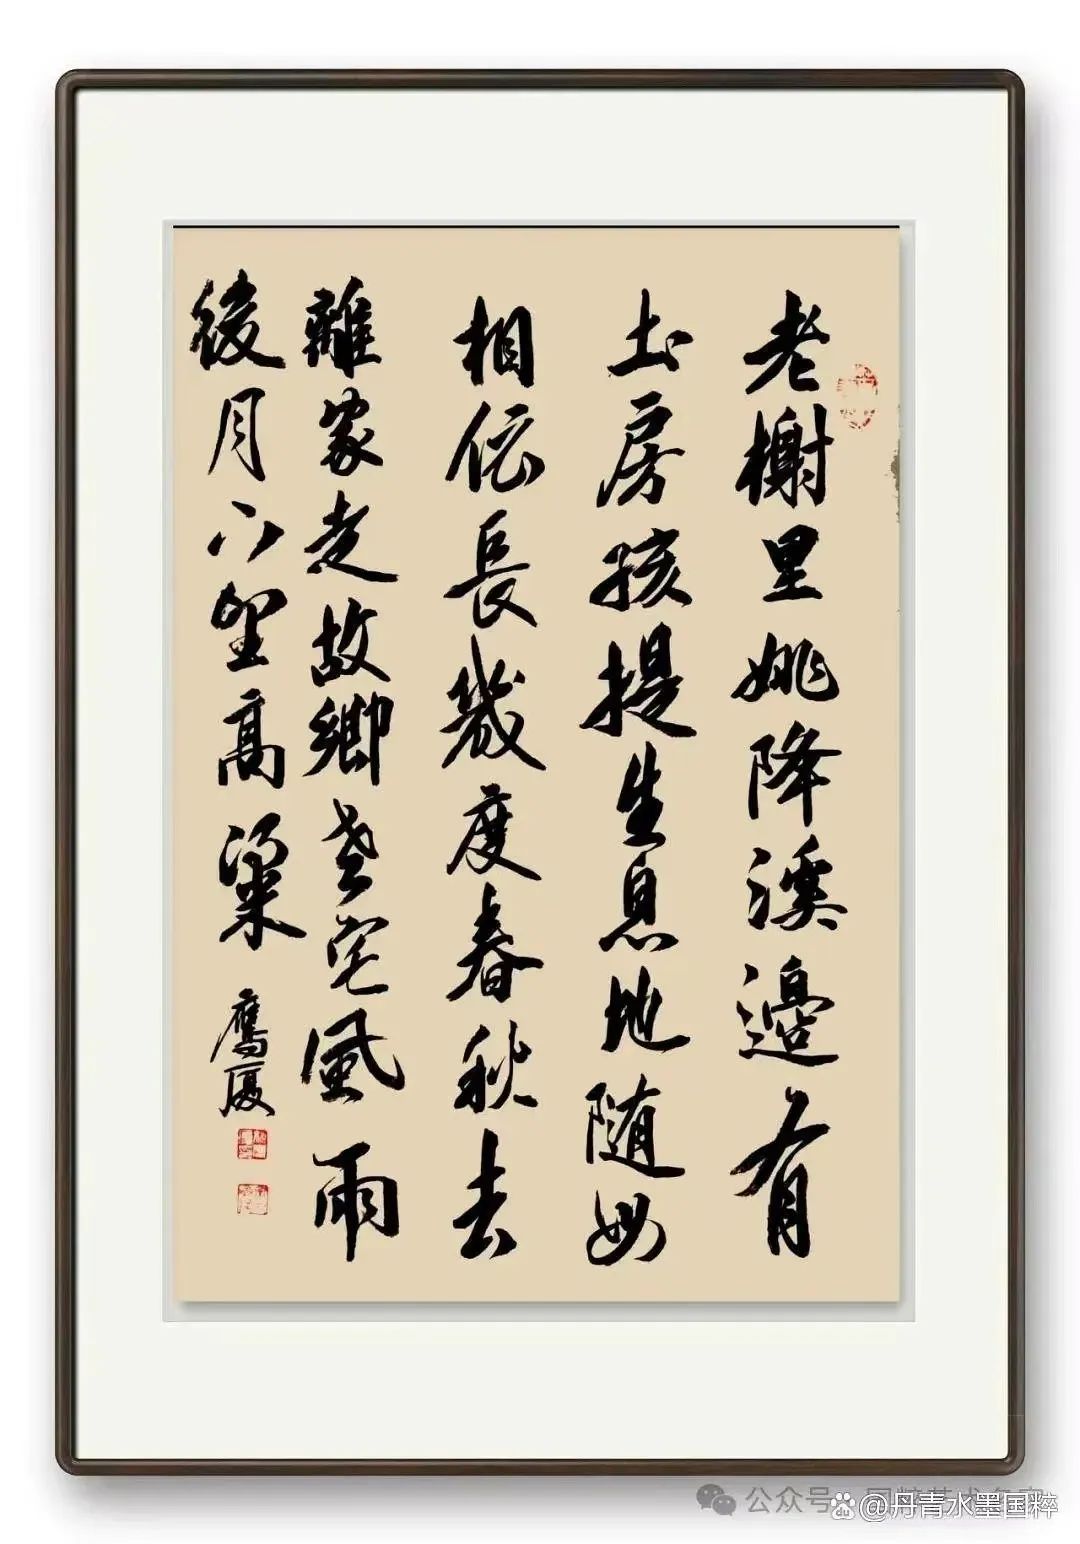 老榭里姚降溪邊有
土房孩提生息地随母
相依長幾度春秋去
離家走故鄉老宅風雨
後月下望高粱 鷹厦
公众号
@丹青水墨国粹